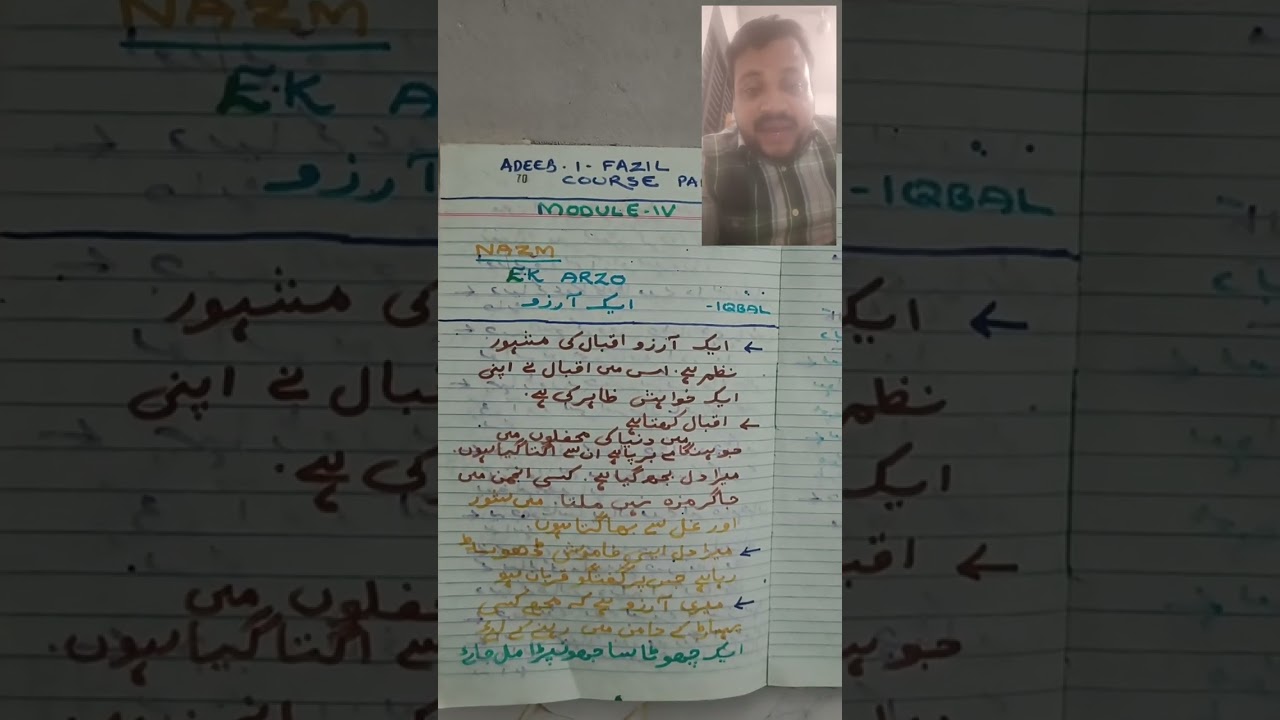 ADEEB-I-FAZIL
70 COURSE PA
MODULE-IV
NAZM
EK ARZO
ایک آرزو -IQBAL
← ایک آرزو اقبال کی مشہور
نظم ہے۔ اس میں اقبال نے اپنی
ایک خواہش ظاہر کی ہے۔
← اقبال کہتا ہے
میں دنیا کی محفلوں میں
جو ہنگامے برپا ہے ان سے اکتا گیا ہوں۔
میرا دل بجھ گیا ہے۔ کسی انجمن میں
جا کر مزہ نہیں ملتا میں شور
اور غل سے بھاگتا ہوں
← میرا دل ایسی خاموشی ڈھونڈ
رہا ہے جس پر گفتگو قربان ہو
← میری آرزو ہے کہ مجھے کسی
پہاڑ کے دامن میں رہنے کے لیے
ایک چھوٹا سا جھونپڑا مل جائے